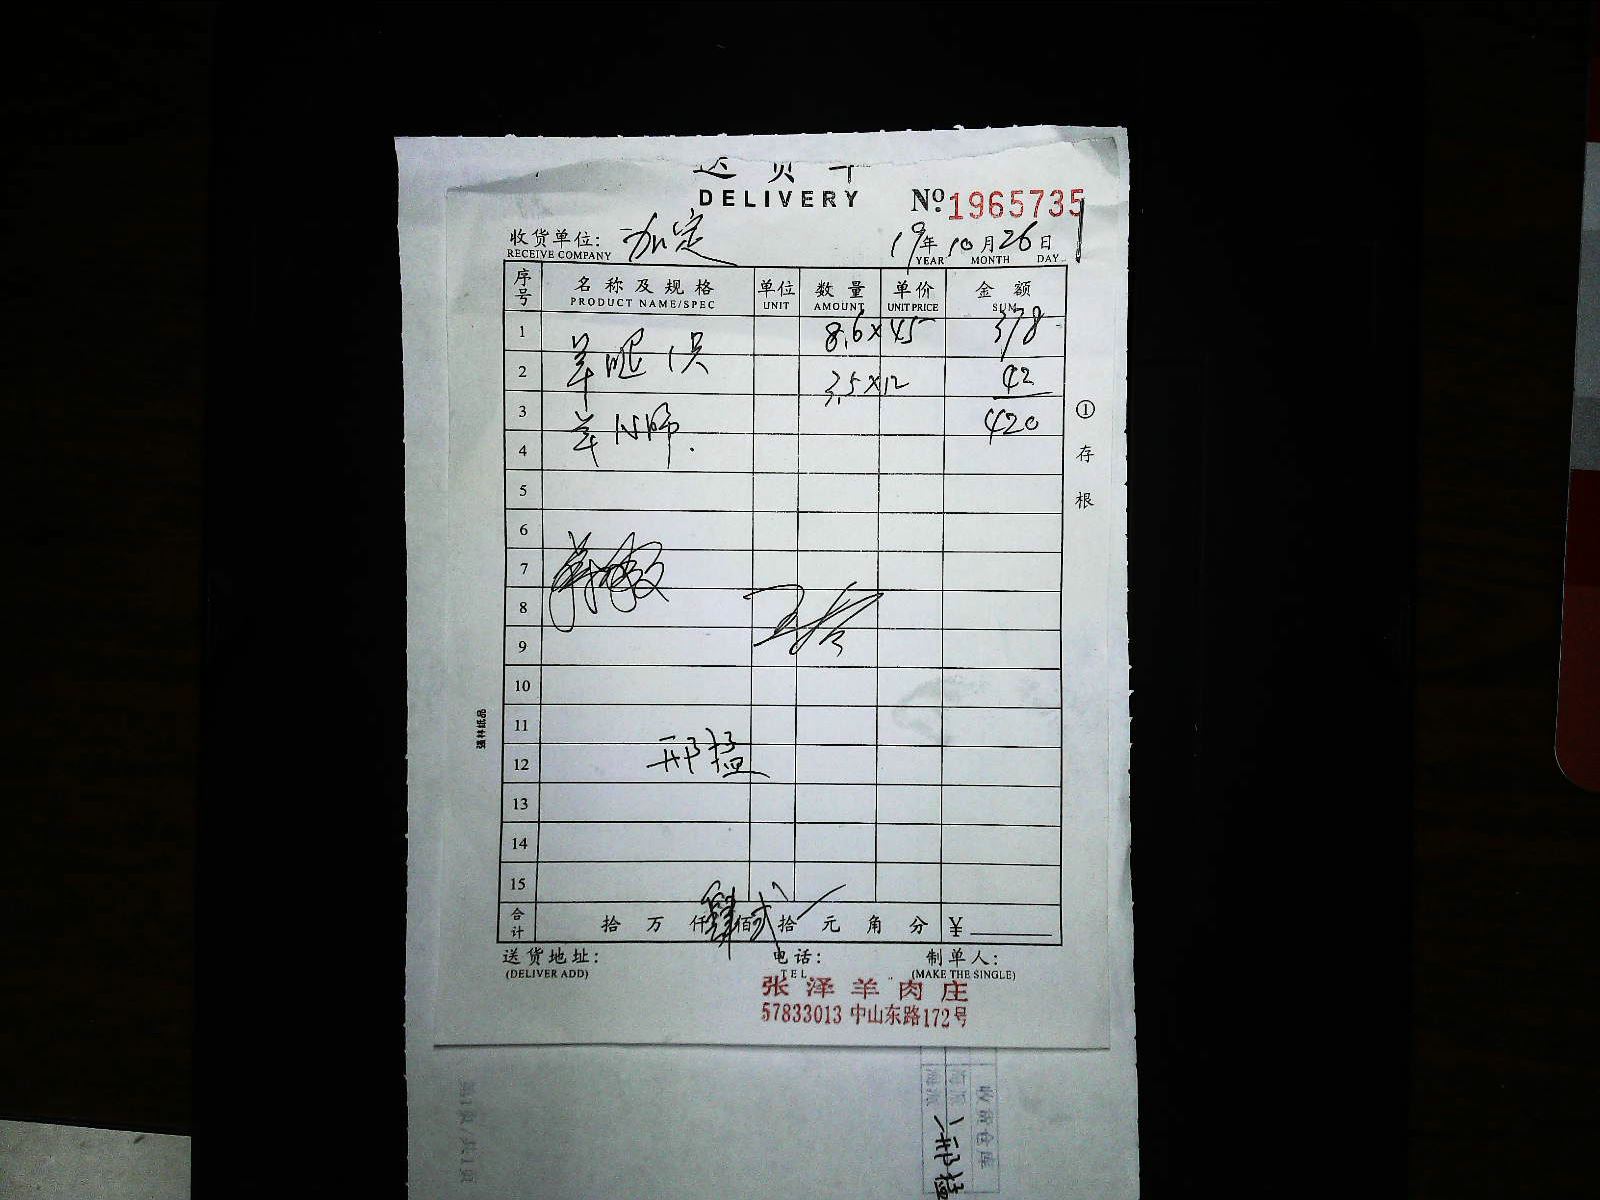 送货单
DELIVERY
№ 1965735
收货单位： 加定 19年10月26日
RECEIVE COMPANY YEAR MONTH DAY
序号 名称及规格 单位 数量 单价 金额
PRODUCT NAME/SPEC UNIT AMOUNT UNIT PRICE SUM
1 羊腿 1只 8.6×45 378
2 3.5×12 42
3 羊心肺. 420
4
5
6
7
8
9
10
11
12 邢猛
13
14
15
合计 拾 万 仟 肆 佰 贰 拾 元 角 分 ¥
送货地址： 电话： 制单人：
(DELIVER ADD) TEL (MAKE THE SINGLE)
张泽羊肉庄
57833013 中山东路172号
①存根
强林纸品